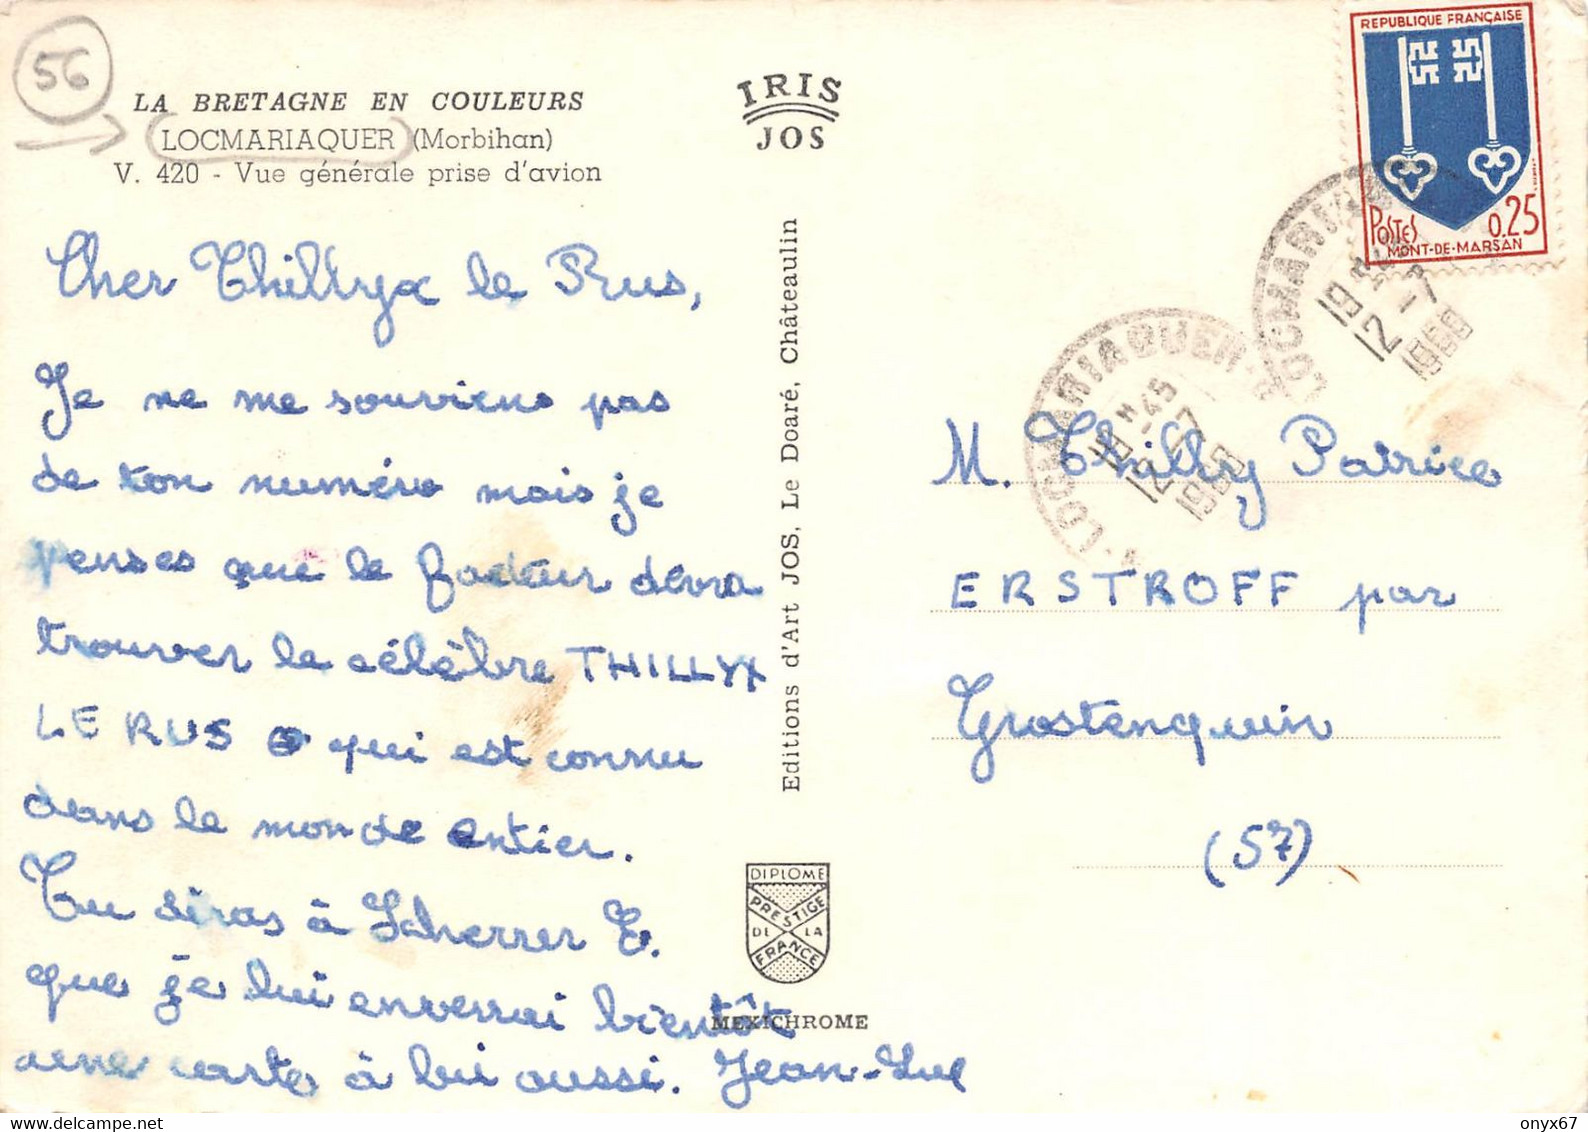 56
LA BRETAGNE EN COULEURS
LOCMARIAQUER (Morbihan)
V. 420 - Vue générale prise d'avion
IRIS
JOS
REPUBLIQUE FRANÇAISE
POSTES 0,25
MONT-DE-MARSAN
LOCMARIAQUER
12-7
LOCMARIAQUER
12-7
Cher Thillyx le Rus,
Je ne me souviens pas
de ton numéro mais je
penses que le facteur devra
trouver le célèbre THILLYX
LE RUS qui est connu
dans le monde entier.
Tu diras à Scherrer E.
que je lui enverrai bientôt
une carte à lui aussi. Jean-Luc
Editions d'Art JOS, Le Doaré, Châteaulin
DIPLOME
PRESTIGE
DE LA
FRANCE
MEXICHROME
M. Thilly Patrice
ERSTROFF par
Grostenquin
(57)
onyx67